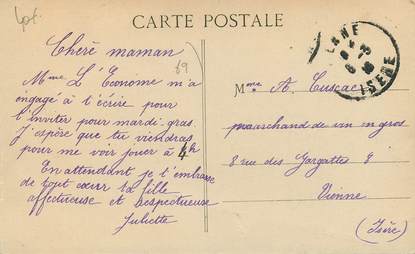 Lot.
CARTE POSTALE
Chère maman
89
Mme L'Econome m'a
engagé à t'écrire pour
t'inviter pour mardi-gras.
J'espère que tu viendras
pour me voir jouer à 4h
En attendant je t'embrasse
de tout cœur ta fille
affectueuse et respectueuse
Juliette
ISERE
Mme A. Cuscac
marchand de vin en gros
8 rue des Gargattes 8
Vienne
(Isère)